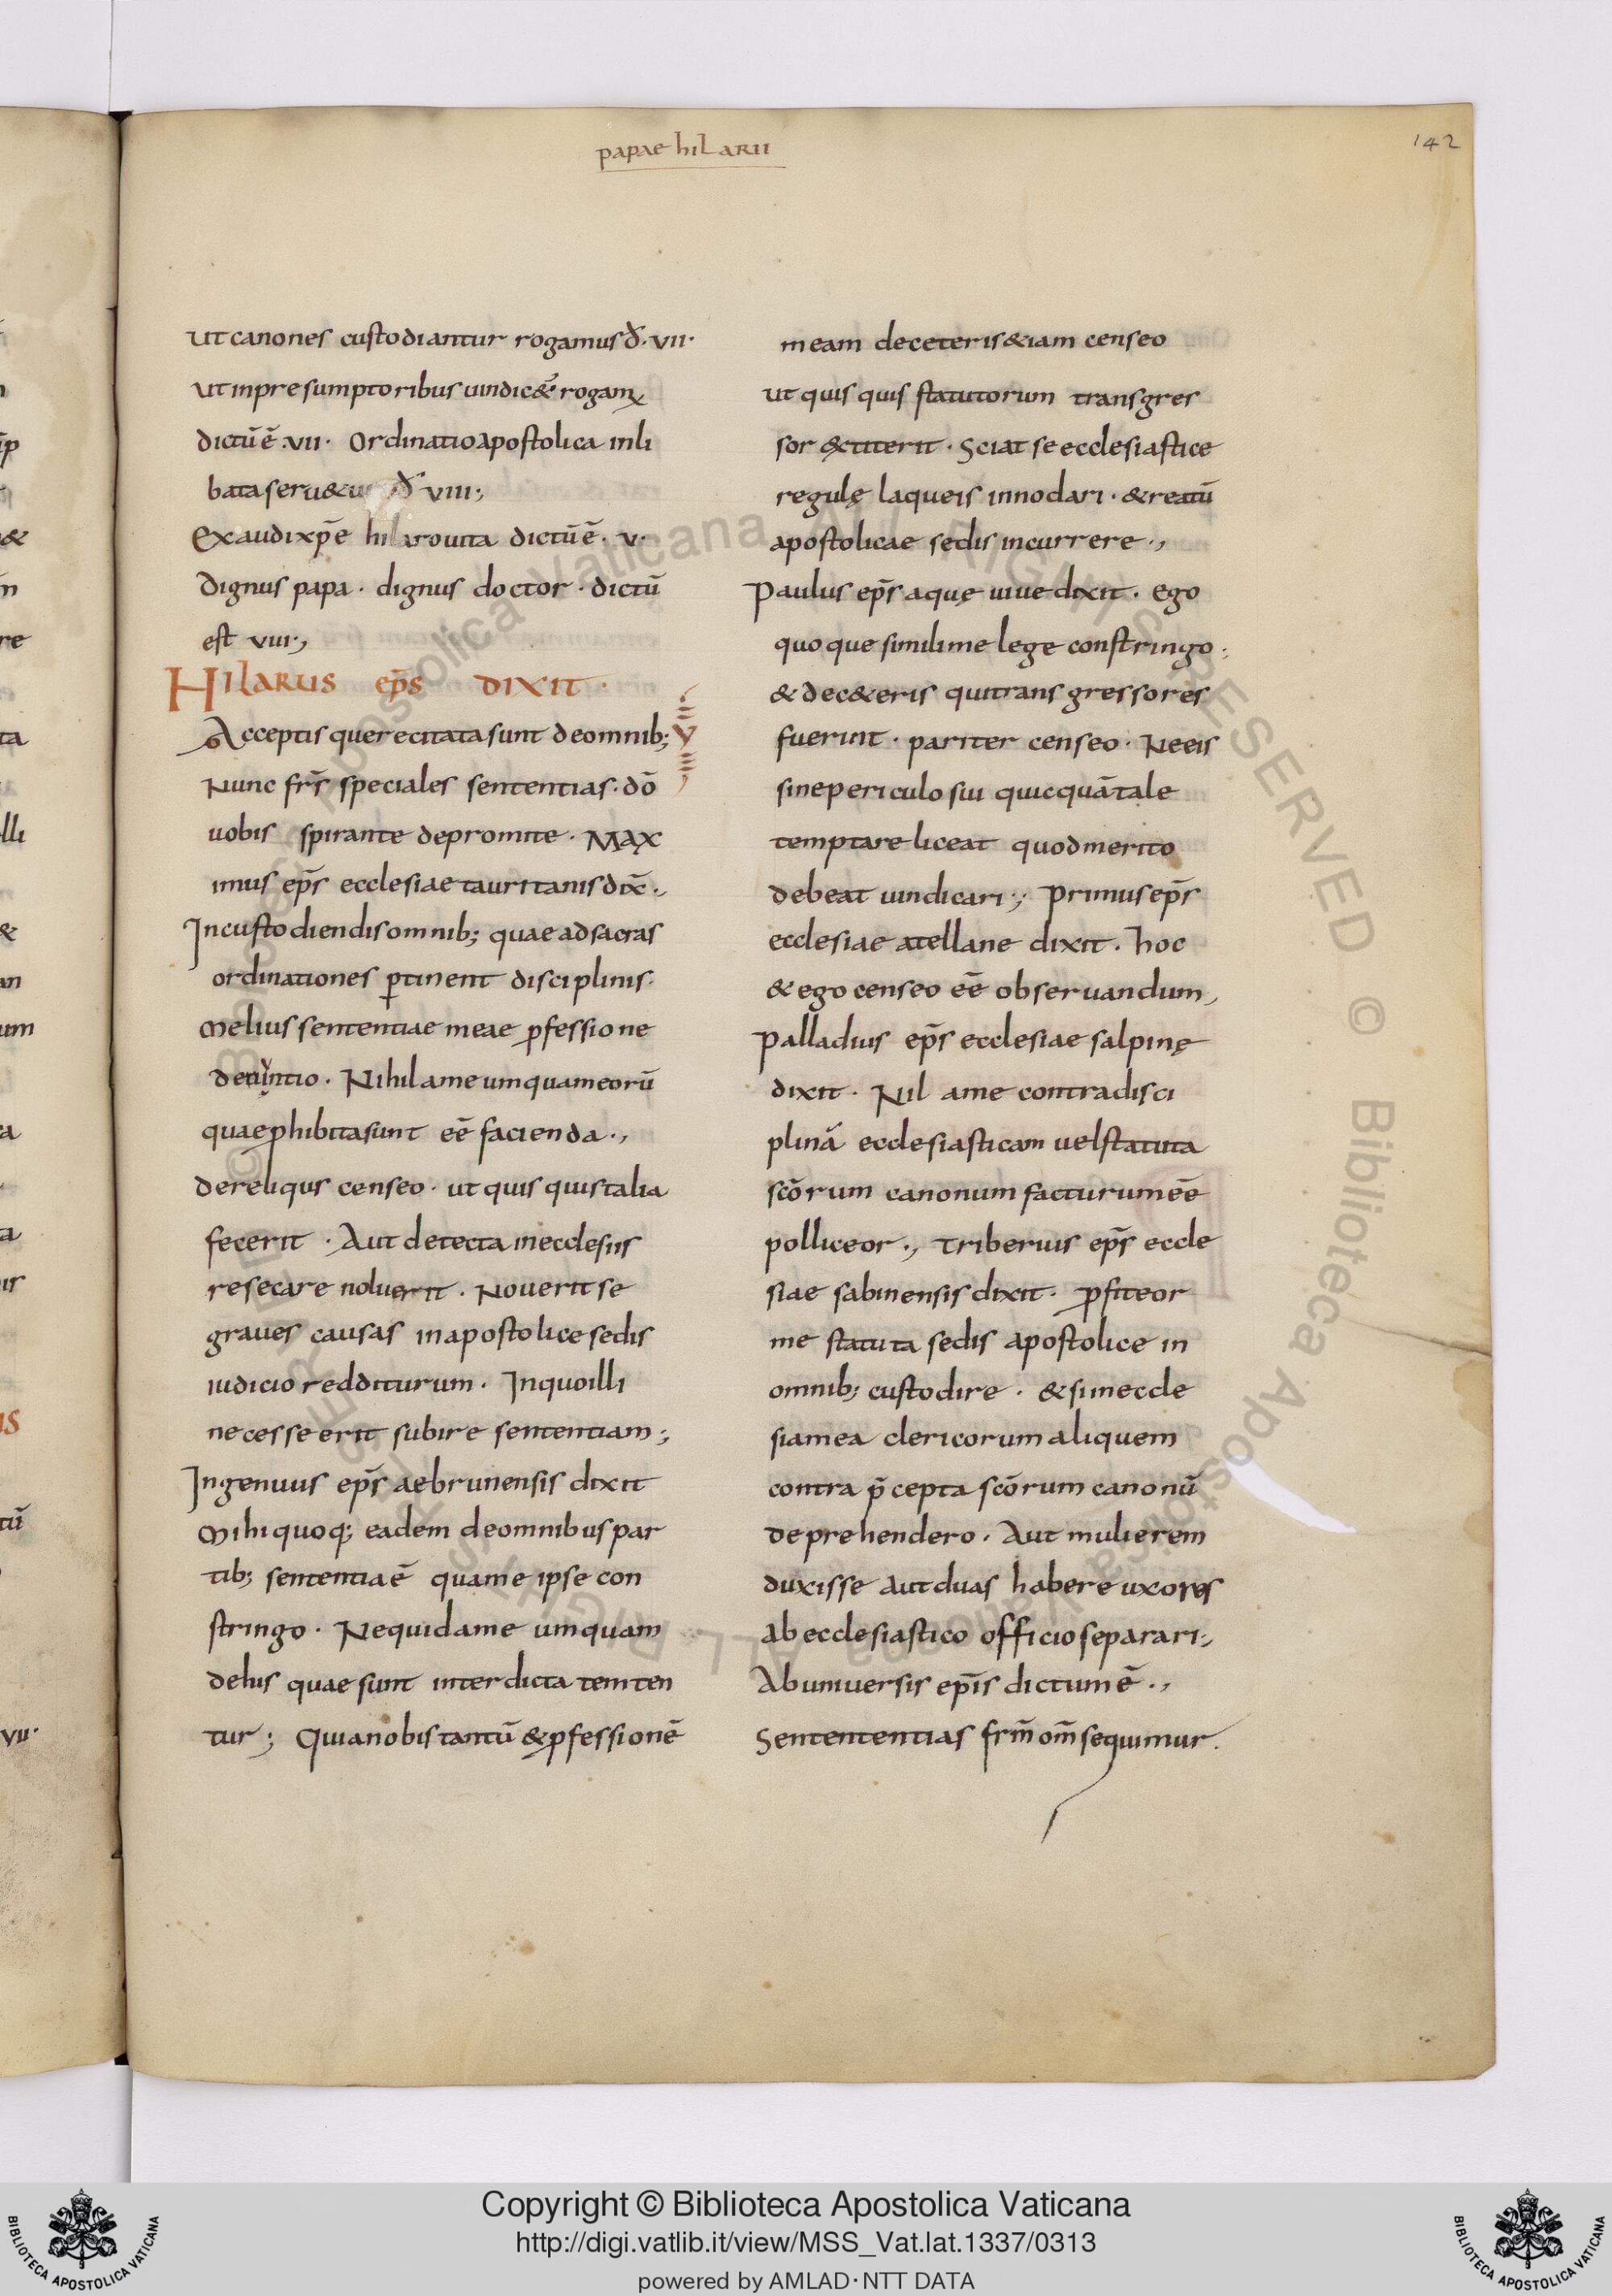 papae hilarii
142
Ut canones custodiantur rogamus d̄. vii.
Ut in presumptoribus uindic&̄ rogam᷒
dictū ē. vii. Ordinatio apostolica inli
bata seru&u d̄ viii;
Exaudi xp̄e hilaro uita dictū ē. v.
dignus papa. dignus doctor. dictū
est viii.,
Hilarus ep̄s dixit.
Acceptis que recitata sunt de omnib;
V
Nunc fr̄s speciales sententias. dō
uobis spirante depromite. Max
imus ep̄s ecclesiae tauritanis dix̄.,
In custodiendis omnib; quae ad sacras
ordinationes ꝑtinent disciplinis.
Melius sententiae meae ꝓfessione
. Nihil a me umquam eorū
quae ꝓhibita sunt eē facienda.,
de reliqus censeo. ut quis quis talia
fecerit. Aut detecta in ecclesiis
resecare noluerit. Nouerit se
graues causas in apostolice sedis
iudicio redditurum. In quo illi
necesse erit subire sententiam;
Ingenuus ep̄s aebrunensis dixit
Mihi quoq; eadem de omnibus par
tib; sententia ē qua me ipse con
stringo. Ne quid a me umquam
de his quae sunt interdicta temten
tur; Quia nobis tantū & ꝓfessionē
meam de ceteris &iam censeo
ut quis quis statutorum transgres
sor extiterit. Sciat se ecclesiastice
regulę laqueis innodari. & reatū
apostolicae sedis incurrere.,
Paulus ep̄s aquę uiue dixit. Ego
quoque simili me lege constringo.
& de c&eris qui transgressores
fuerint. pariter censeo. Ne eis
sine periculo sui quicquā tale
temptare liceat quod merito
debeat uindicari; Primus ep̄s
ecclesiae atellane dixit. hoc
& ego censeo eē obseruandum,
Palladius ep̄s ecclesiae salpinę
dixit. Nil a me contra disci
plinā ecclesiasticam uel statuta
scōrum canonum facturum eē
polliceor., Tiberius ep̄s eccle
siae sabinensis dixit. ꝓfiteor
me statuta sedis apostolice in
omnib; custodire. & si in eccle
sia mea clericorum aliquem
contra p̄cepta scōrum canonū
deprehendero. Aut mulierem
duxisse aut duas habere uxores
ab ecclesiastico officio separari.,
Ab uniuersis ep̄is dictum ē.,
Sentententias fr̄m om̄ sequimur.
Copyright © Biblioteca Apostolica Vaticana
http://digi.vatlib.it/view/MSS_Vat.lat.1337/0313
powered by AMLAD·NTT DATA
BIBLIOTECA APOSTOLICA VATICANA
BIBLIOTECA APOSTOLICA VATICANA